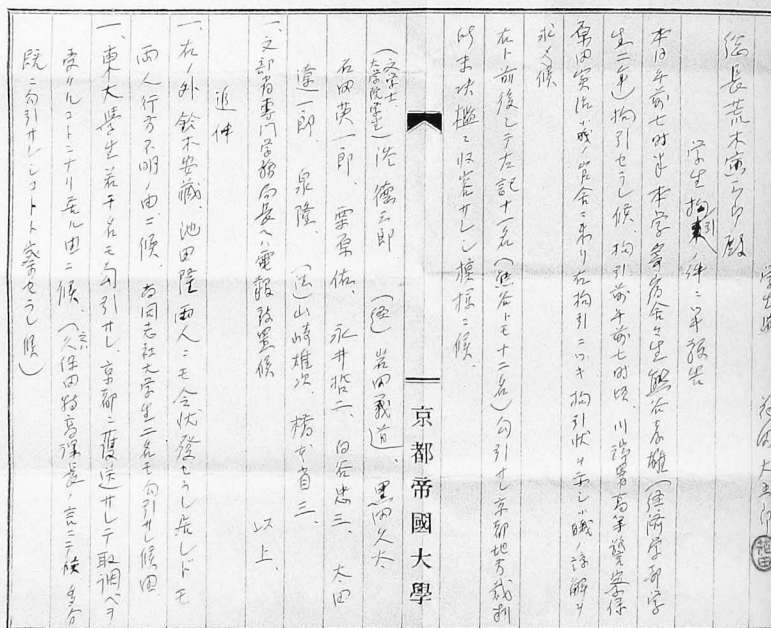 学生監 花田大五郎
総長荒木寅三郎殿
学生拘引ノ件ニ关報告
本日午前七時半本学寄宿舎々生熊谷孝雄(経済学部学
生二年)拘引セラレ候、拘引前午前七時頃、川端署高等警察係
原田実治小職ノ官舎ニ来リ右拘引ニツキ拘引状ヲ示シ小職ノ諒解ヲ
求メ候
右ト前後シテ左記十一名(熊谷トモ十二名)勾引サレ京都地方裁判
所未決檻ニ収容サレシ模様ニ候
京都帝國大學
(文学士、大学院学生)淡徳三郎 (経)岩田義道、黒田久太
石田英一郎 栗原佑、永井哲二、白谷忠三、太田
遼一郎、泉隆、(法)山崎雄次、橋本省三、
一、文部省専門学務局長ヘハ電報致置候 以上
追伸
一、右ノ外鈴木安蔵、池田隆両人ニモ令状發セラレ居レドモ
両人行方不明ノ由ニ候、尚同志社大学生二名モ勾引サレ候由
一、東大學生若干名モ勾引サレ、京都ニ護送サレテ取調ベヲ
受クルコトトナリ居ル由ニ候、(久保田特高課長ノ言ニテ候 多分
既ニ勾引サレシコトト察セラレ候)